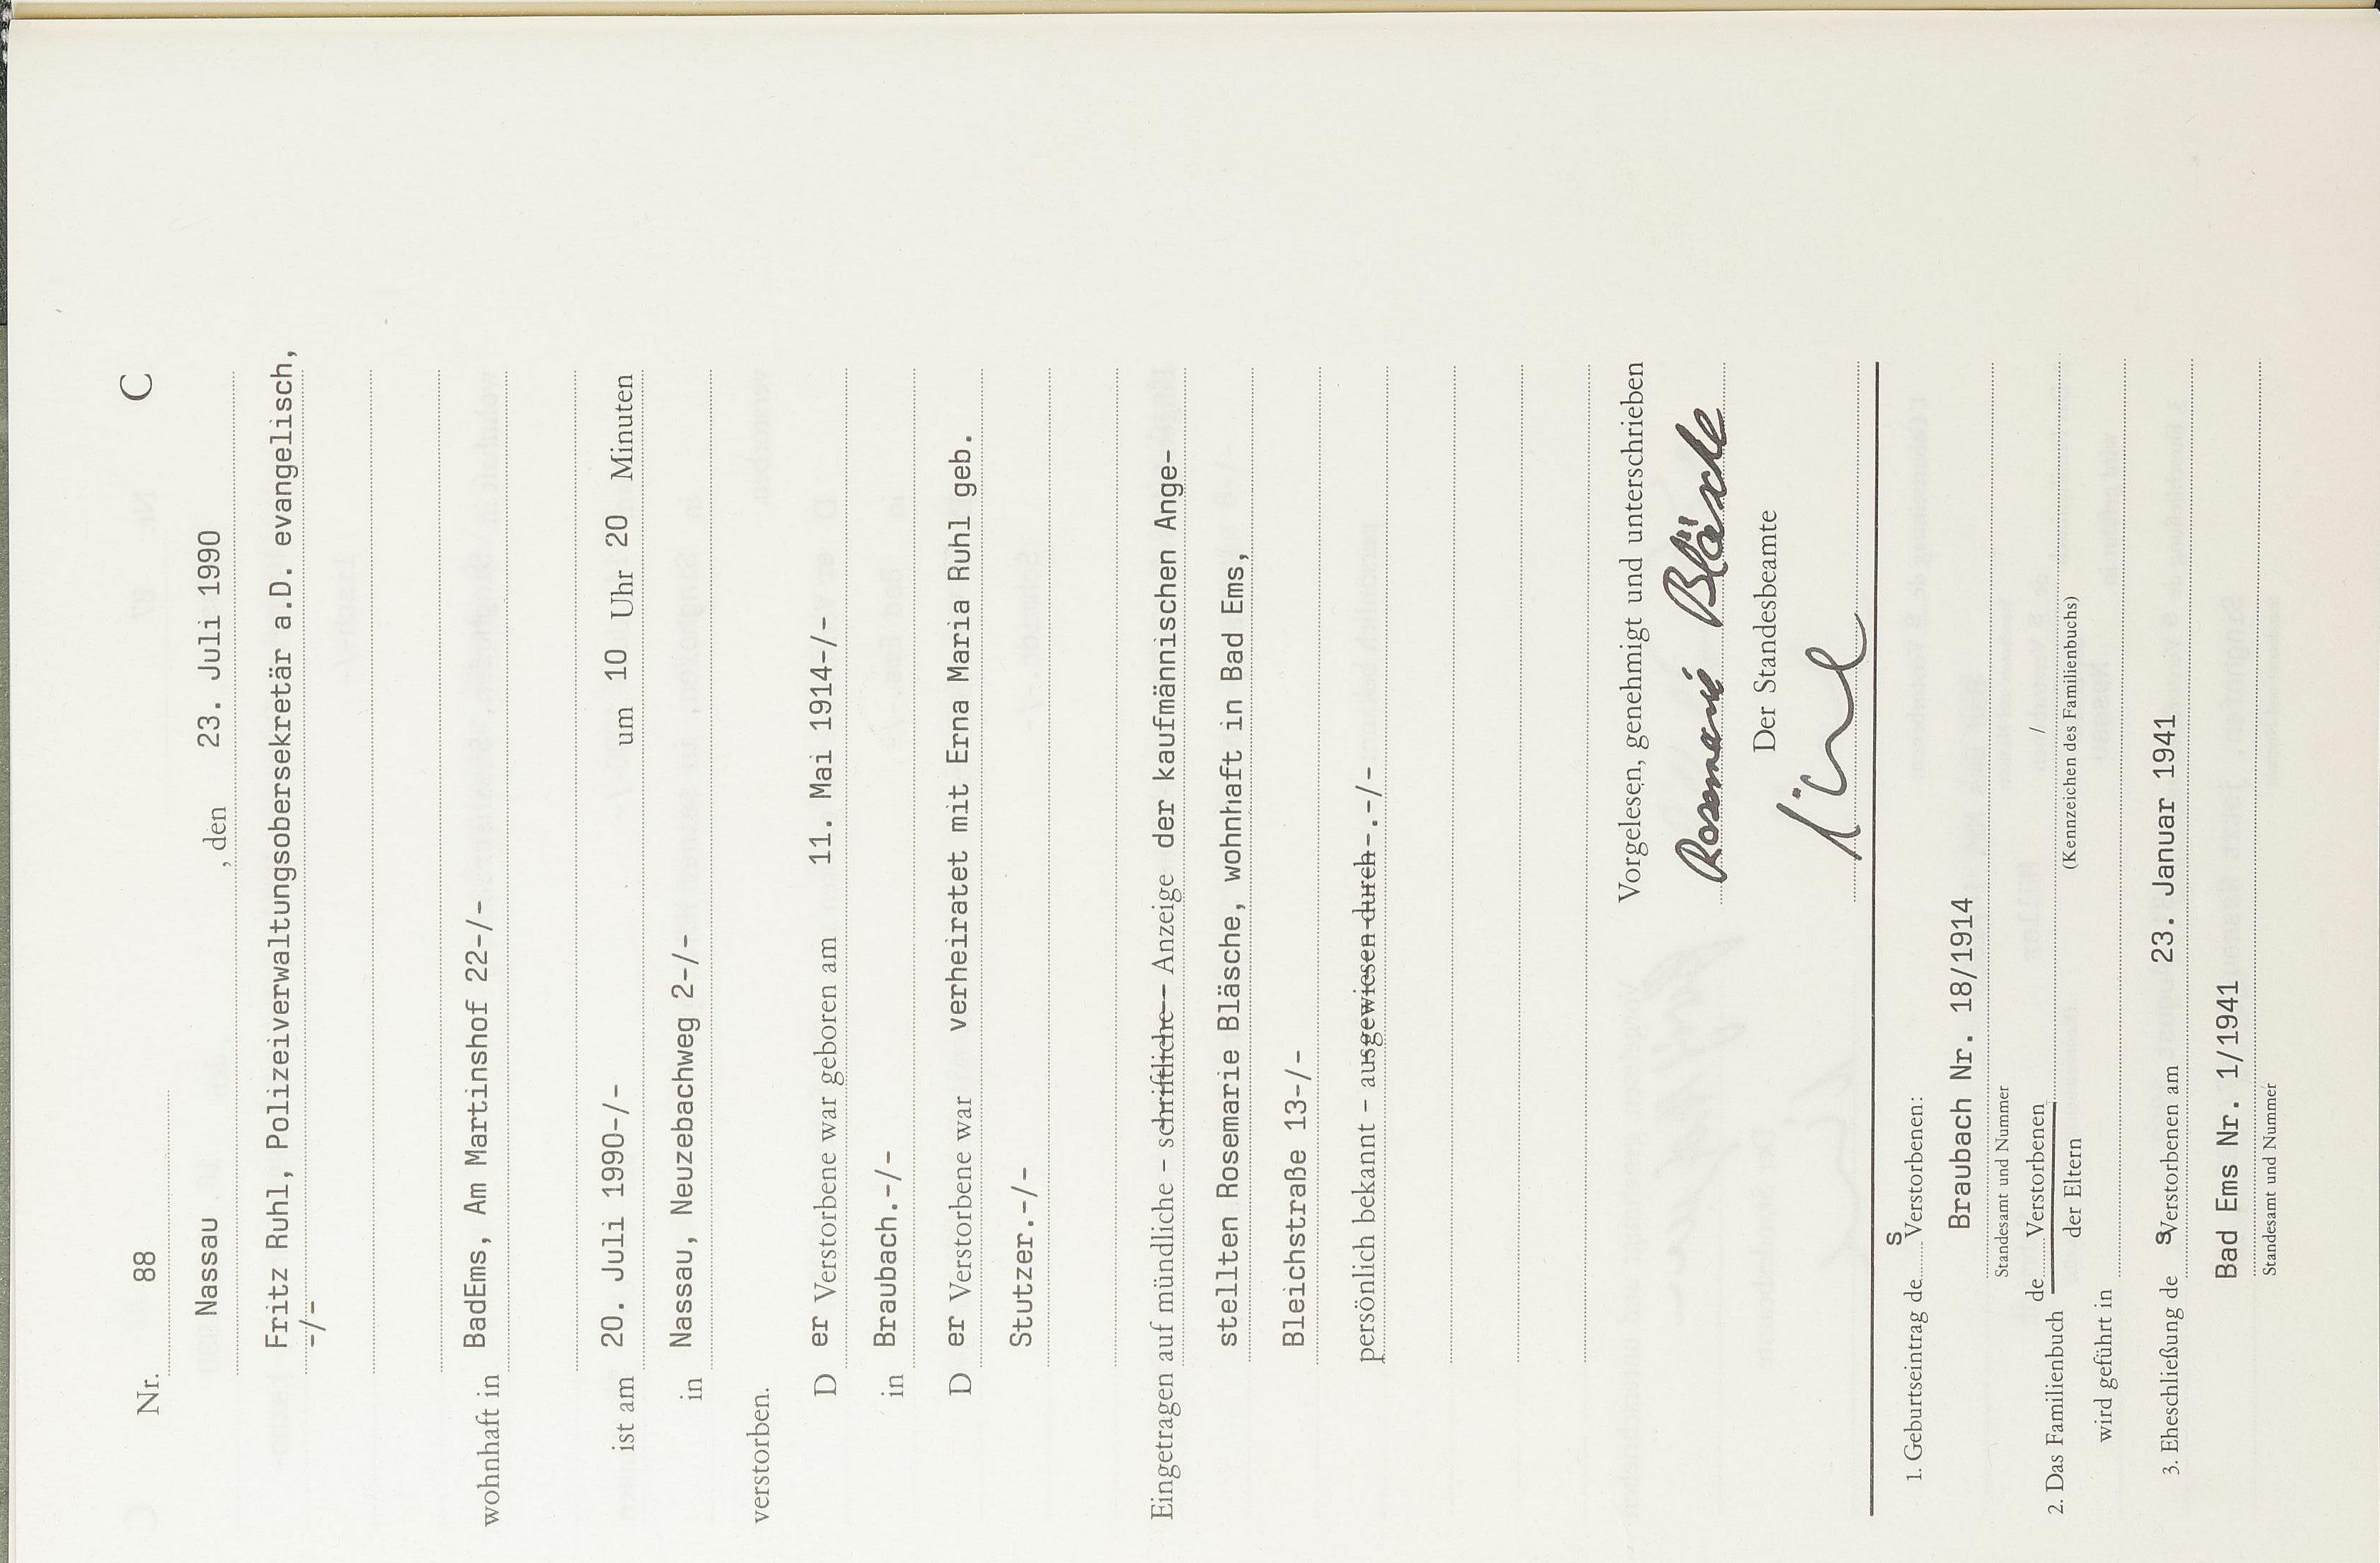 Nr. 88 C
Nassau , den 23. Juli 1990
Fritz Ruhl, Polizeiverwaltungsobersekretär a.D. evangelisch,
-/-
wohnhaft in BadEms, Am Martinshof 22-/-
ist am 20. Juli 1990-/- um 10 Uhr 20 Minuten
in Nassau, Neuzebachweg 2-/-
verstorben.
D er Verstorbene war geboren am 11. Mai 1914-/-
in Braubach.-/-
D er Verstorbene war verheiratet mit Erna Maria Ruhl geb.
Stutzer.-/-
Eingetragen auf mündliche – schriftliche – Anzeige der kaufmännischen Ange-
stellten Rosemarie Bläsche, wohnhaft in Bad Ems,
Bleichstraße 13-/-
persönlich bekannt – ausgewiesen durch -.-/-
Vorgelesen, genehmigt und unterschrieben
Rosemarie Bläsche
Der Standesbeamte
1. Geburtseintrag de s Verstorbenen:
Braubach Nr. 18/1914
Standesamt und Nummer
2. Das Familienbuch de Verstorbenen /
der Eltern (Kennzeichen des Familienbuchs)
wird geführt in
3. Eheschließung de s Verstorbenen am 23. Januar 1941
Bad Ems Nr. 1/1941
Standesamt und Nummer